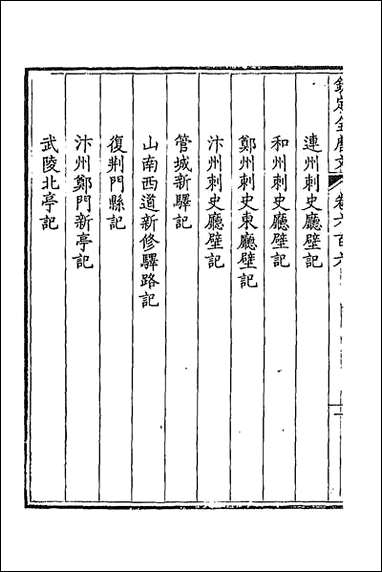 欽定全唐文 卷六百六
連州刺史廳壁記
和州刺史廳壁記
鄭州刺史東廳壁記
汴州刺史廳壁記
管城新驛記
山南西道新修驛路記
復荆門縣記
汴州鄭門新亭記
武陵北亭記